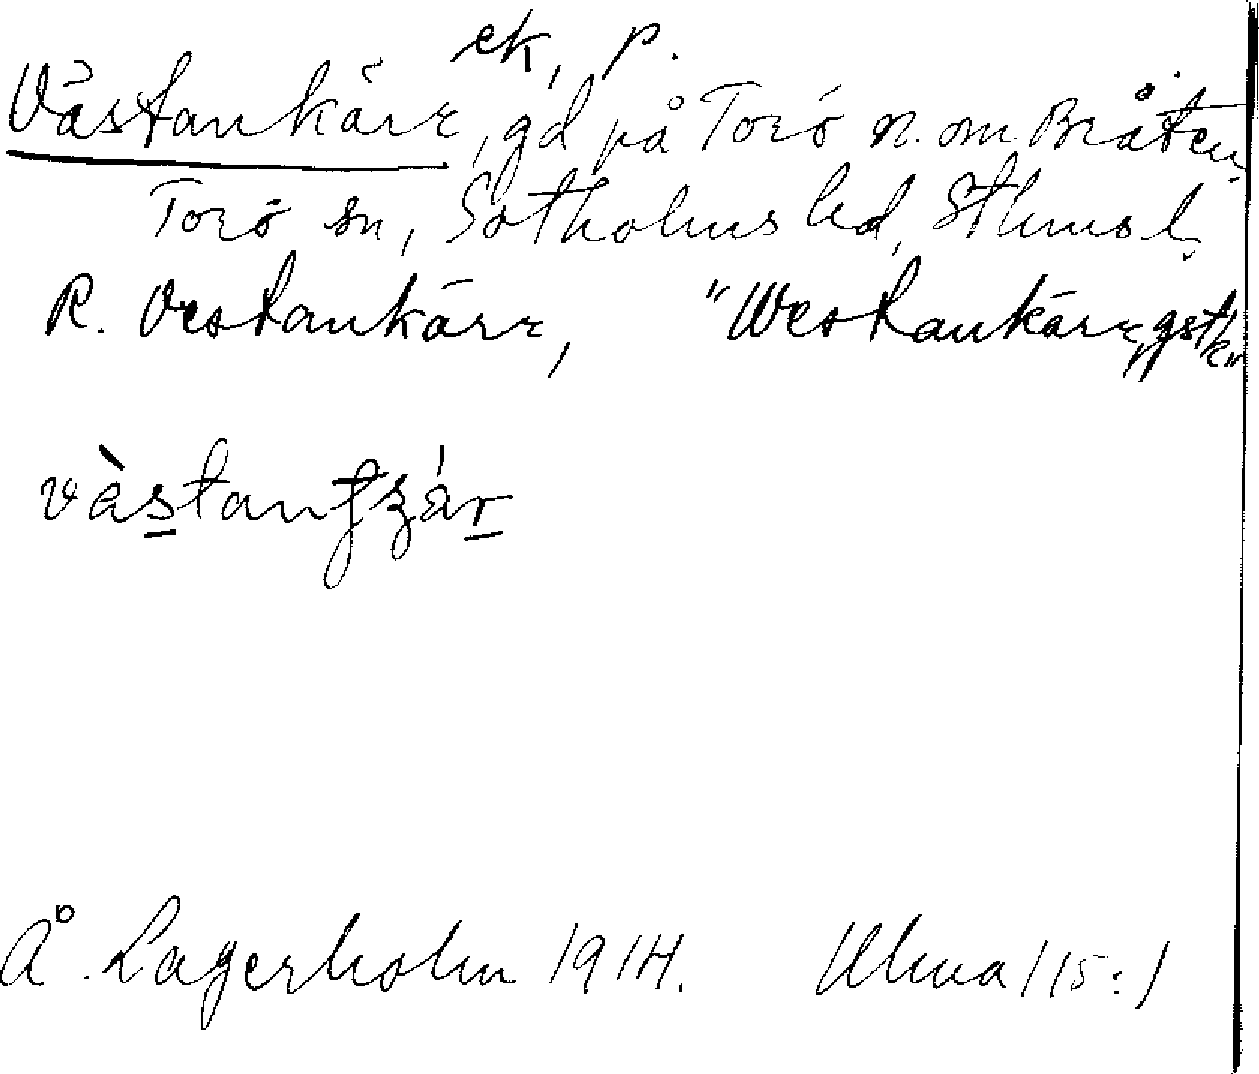 ek, p.
Västankärr, gd på Torö n. om Bråten,
Torö sn, Sotholms hd, Sthms l.
R. Vestankärr, "Westankärr, gst
västan
Å. Lagerholm 1914. Ulma 115:1